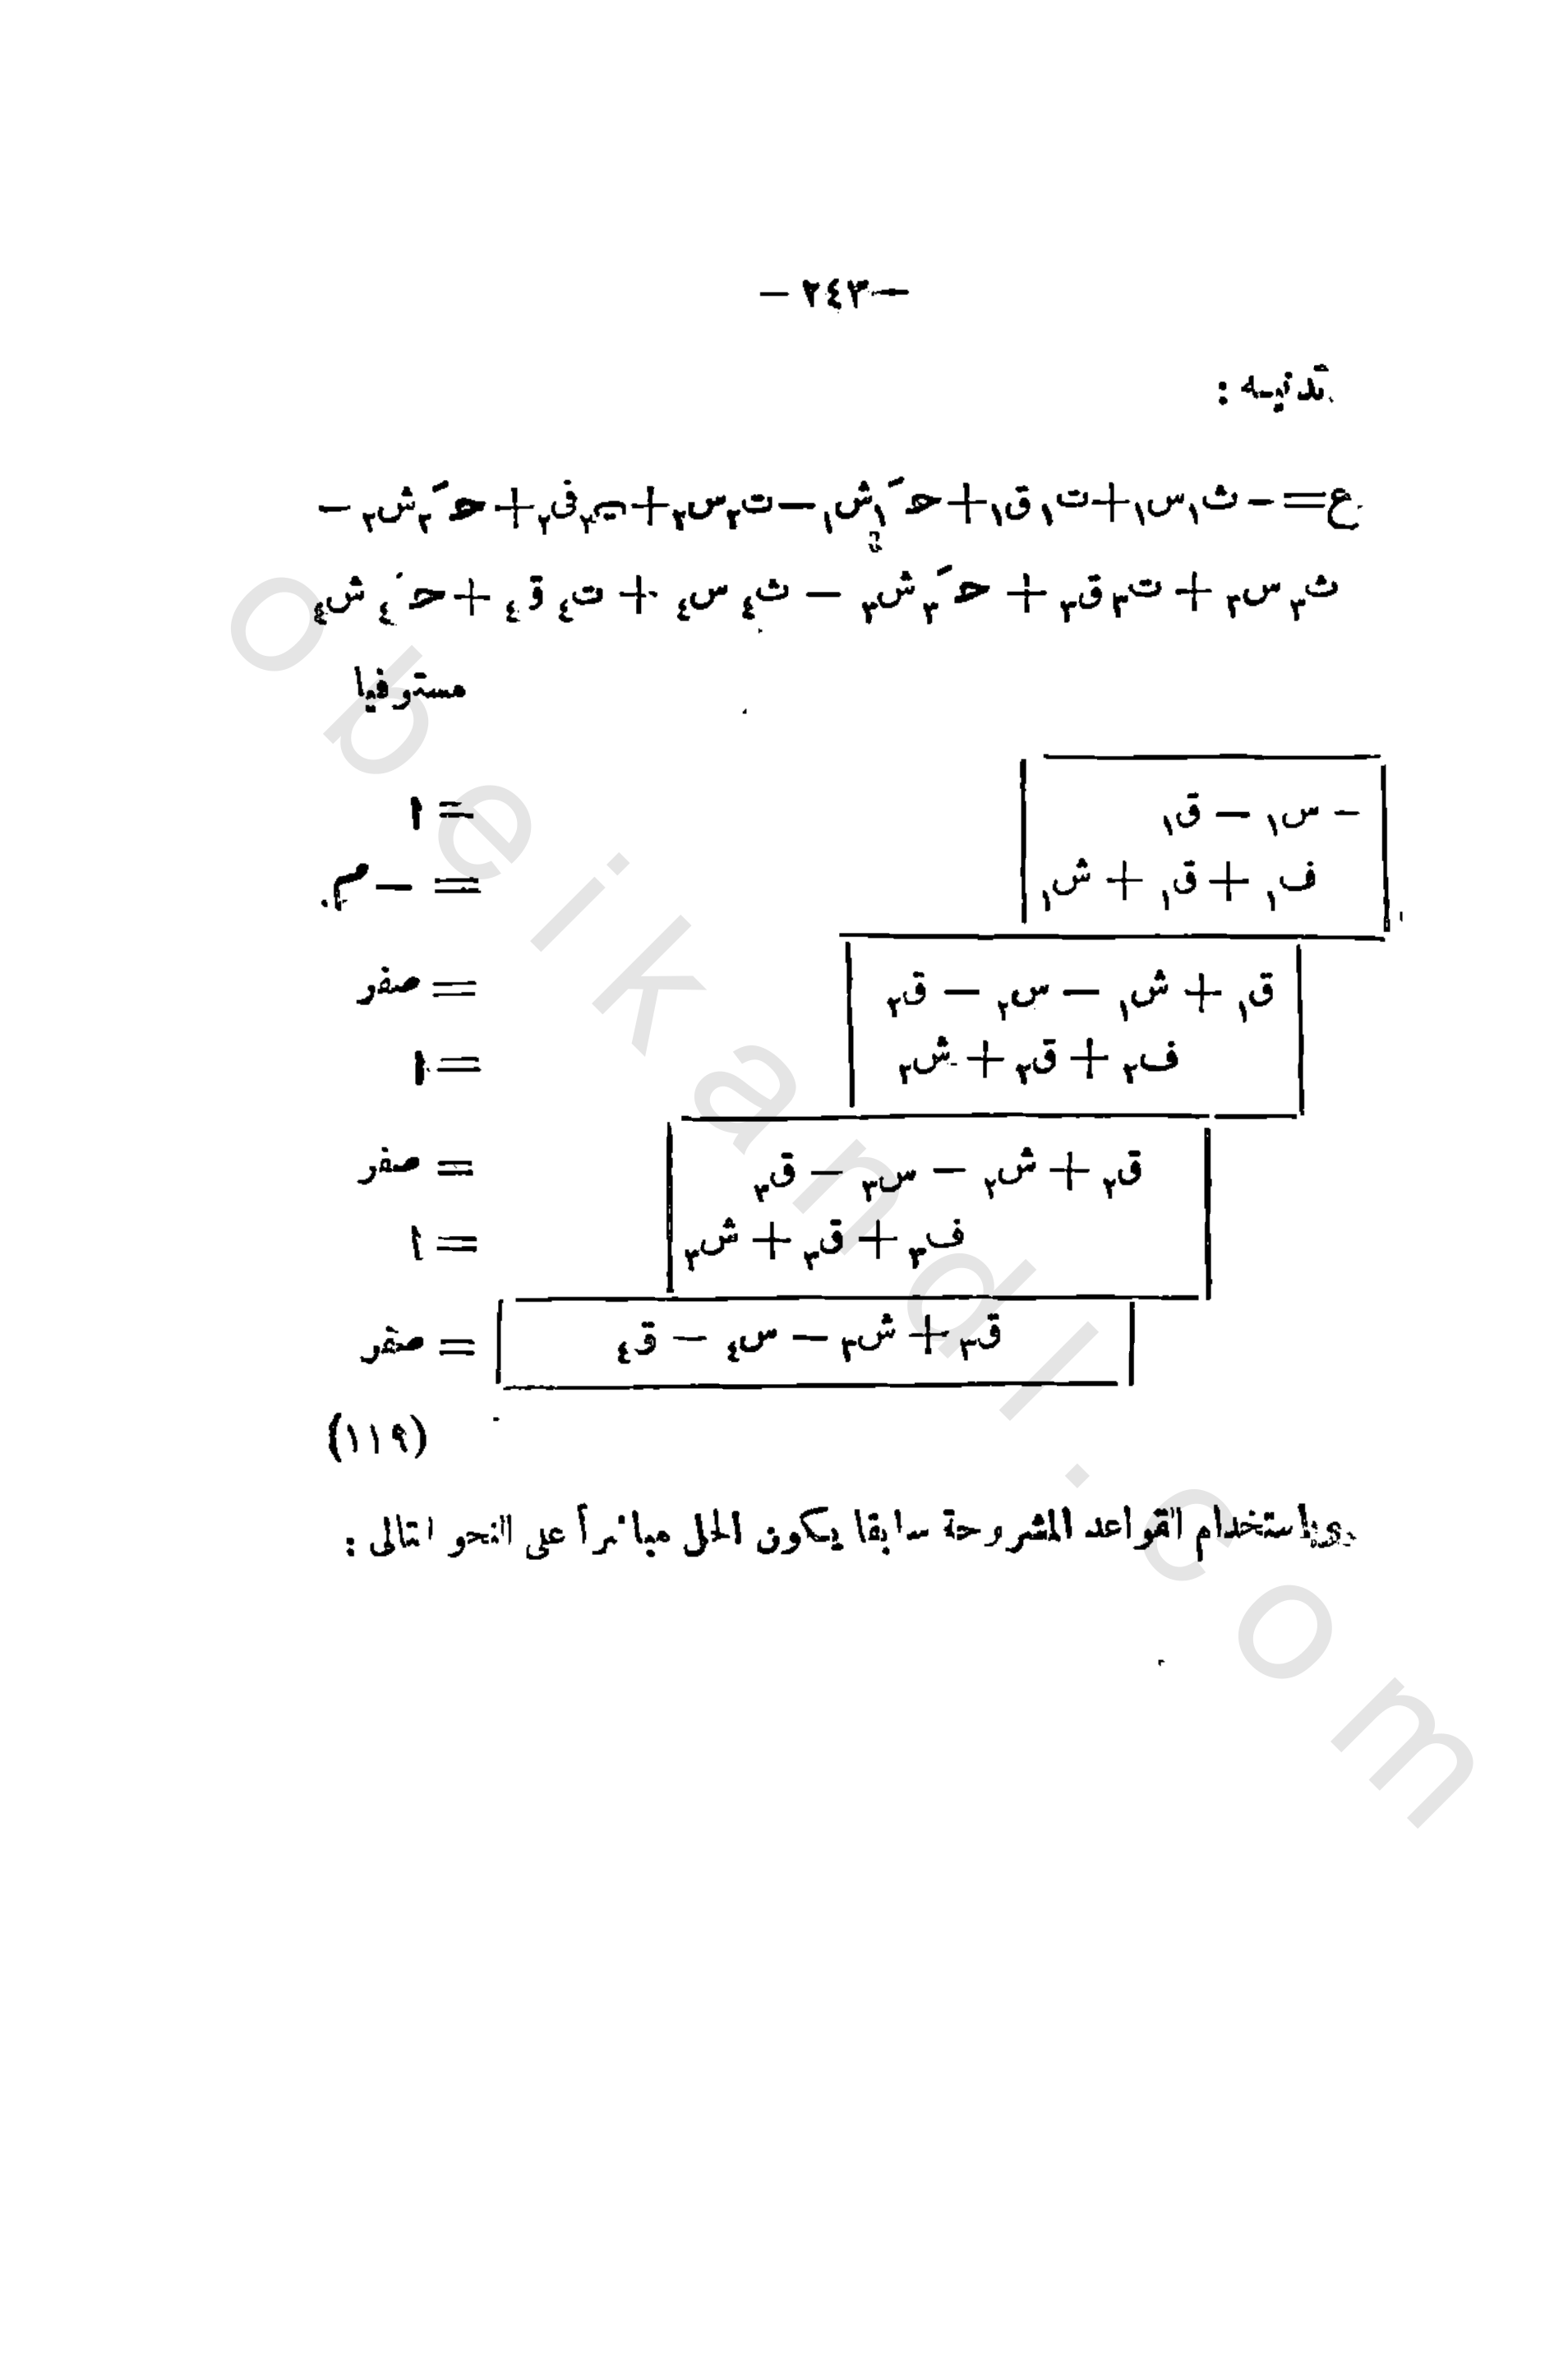 — ٢٤٣ —
تدنيه :
ع = – ث١ س١ + ت١ ق١ + حَ١ ش١ – ت٢ س٢ + ٢ ق٢ + حَ٢ ش٢ –
ث٣ س٣ + ت٣ ق٣ + حَ٣ ش٣ – ث٤ س٤ + ت٤ ق٤ + حَ٤ ش٤
مستوفيا
– س١ – ق١ = ١
ف١ + ق١ + ش١ = – م.
ق١ + ش١ – س٢ – ق٢ = صفر
ف٢ + ق٢ + ش٢ = ١
ق٢ + ش٢ – س٣ – ق٣ = صفر
ف٣ + ق٣ + ش٣ = ١
ق٣ + ش٣ – س٤ – ق٤ = صفر
(١١٩)
وباستخدام القواعد المشروحة سابقا يكون الحل مباشرأ على النحو التالى :
obeikandl.com